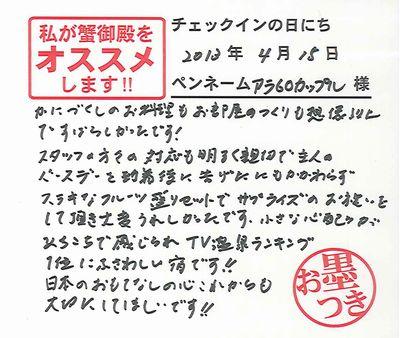 私が蟹御殿を
オススメ
します!!
チェックインの日にち
2013 年 4月 15日
ペンネームアラ60カップル 様
かにづくしのお料理もお部屋のつくりも想像以上に
ですばらしかったです!
スタッフの方々の対応も明るく親切で主人の
バースデーを到着後に告げたにもかかわらず
ステキなフルーツ盛りセットでサプライズのお祝いを
して頂き大変うれしかったです。小さな心配りが
ひしひしで感じられTV温泉ランキング
1位にふさわしい宿です!!
日本のおもてなしの心これからも
大切にしてほしいです!!
お墨つき